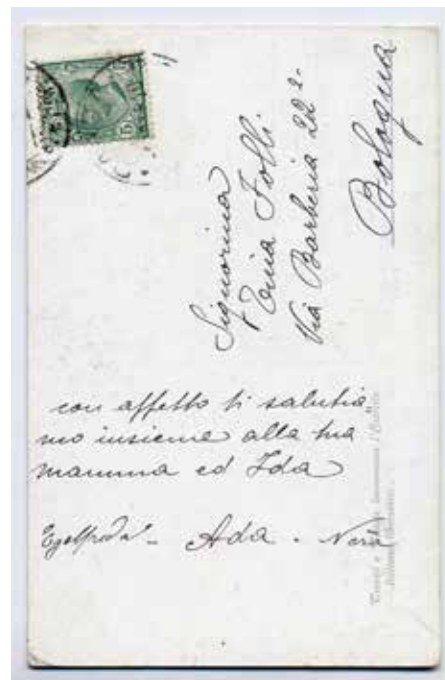 Signorina
Tina Folli
Via Barberia 22²-
Bologna
con affetto ti salutia
mo insieme alla tua
mamma ed Ida
Ada - Nora